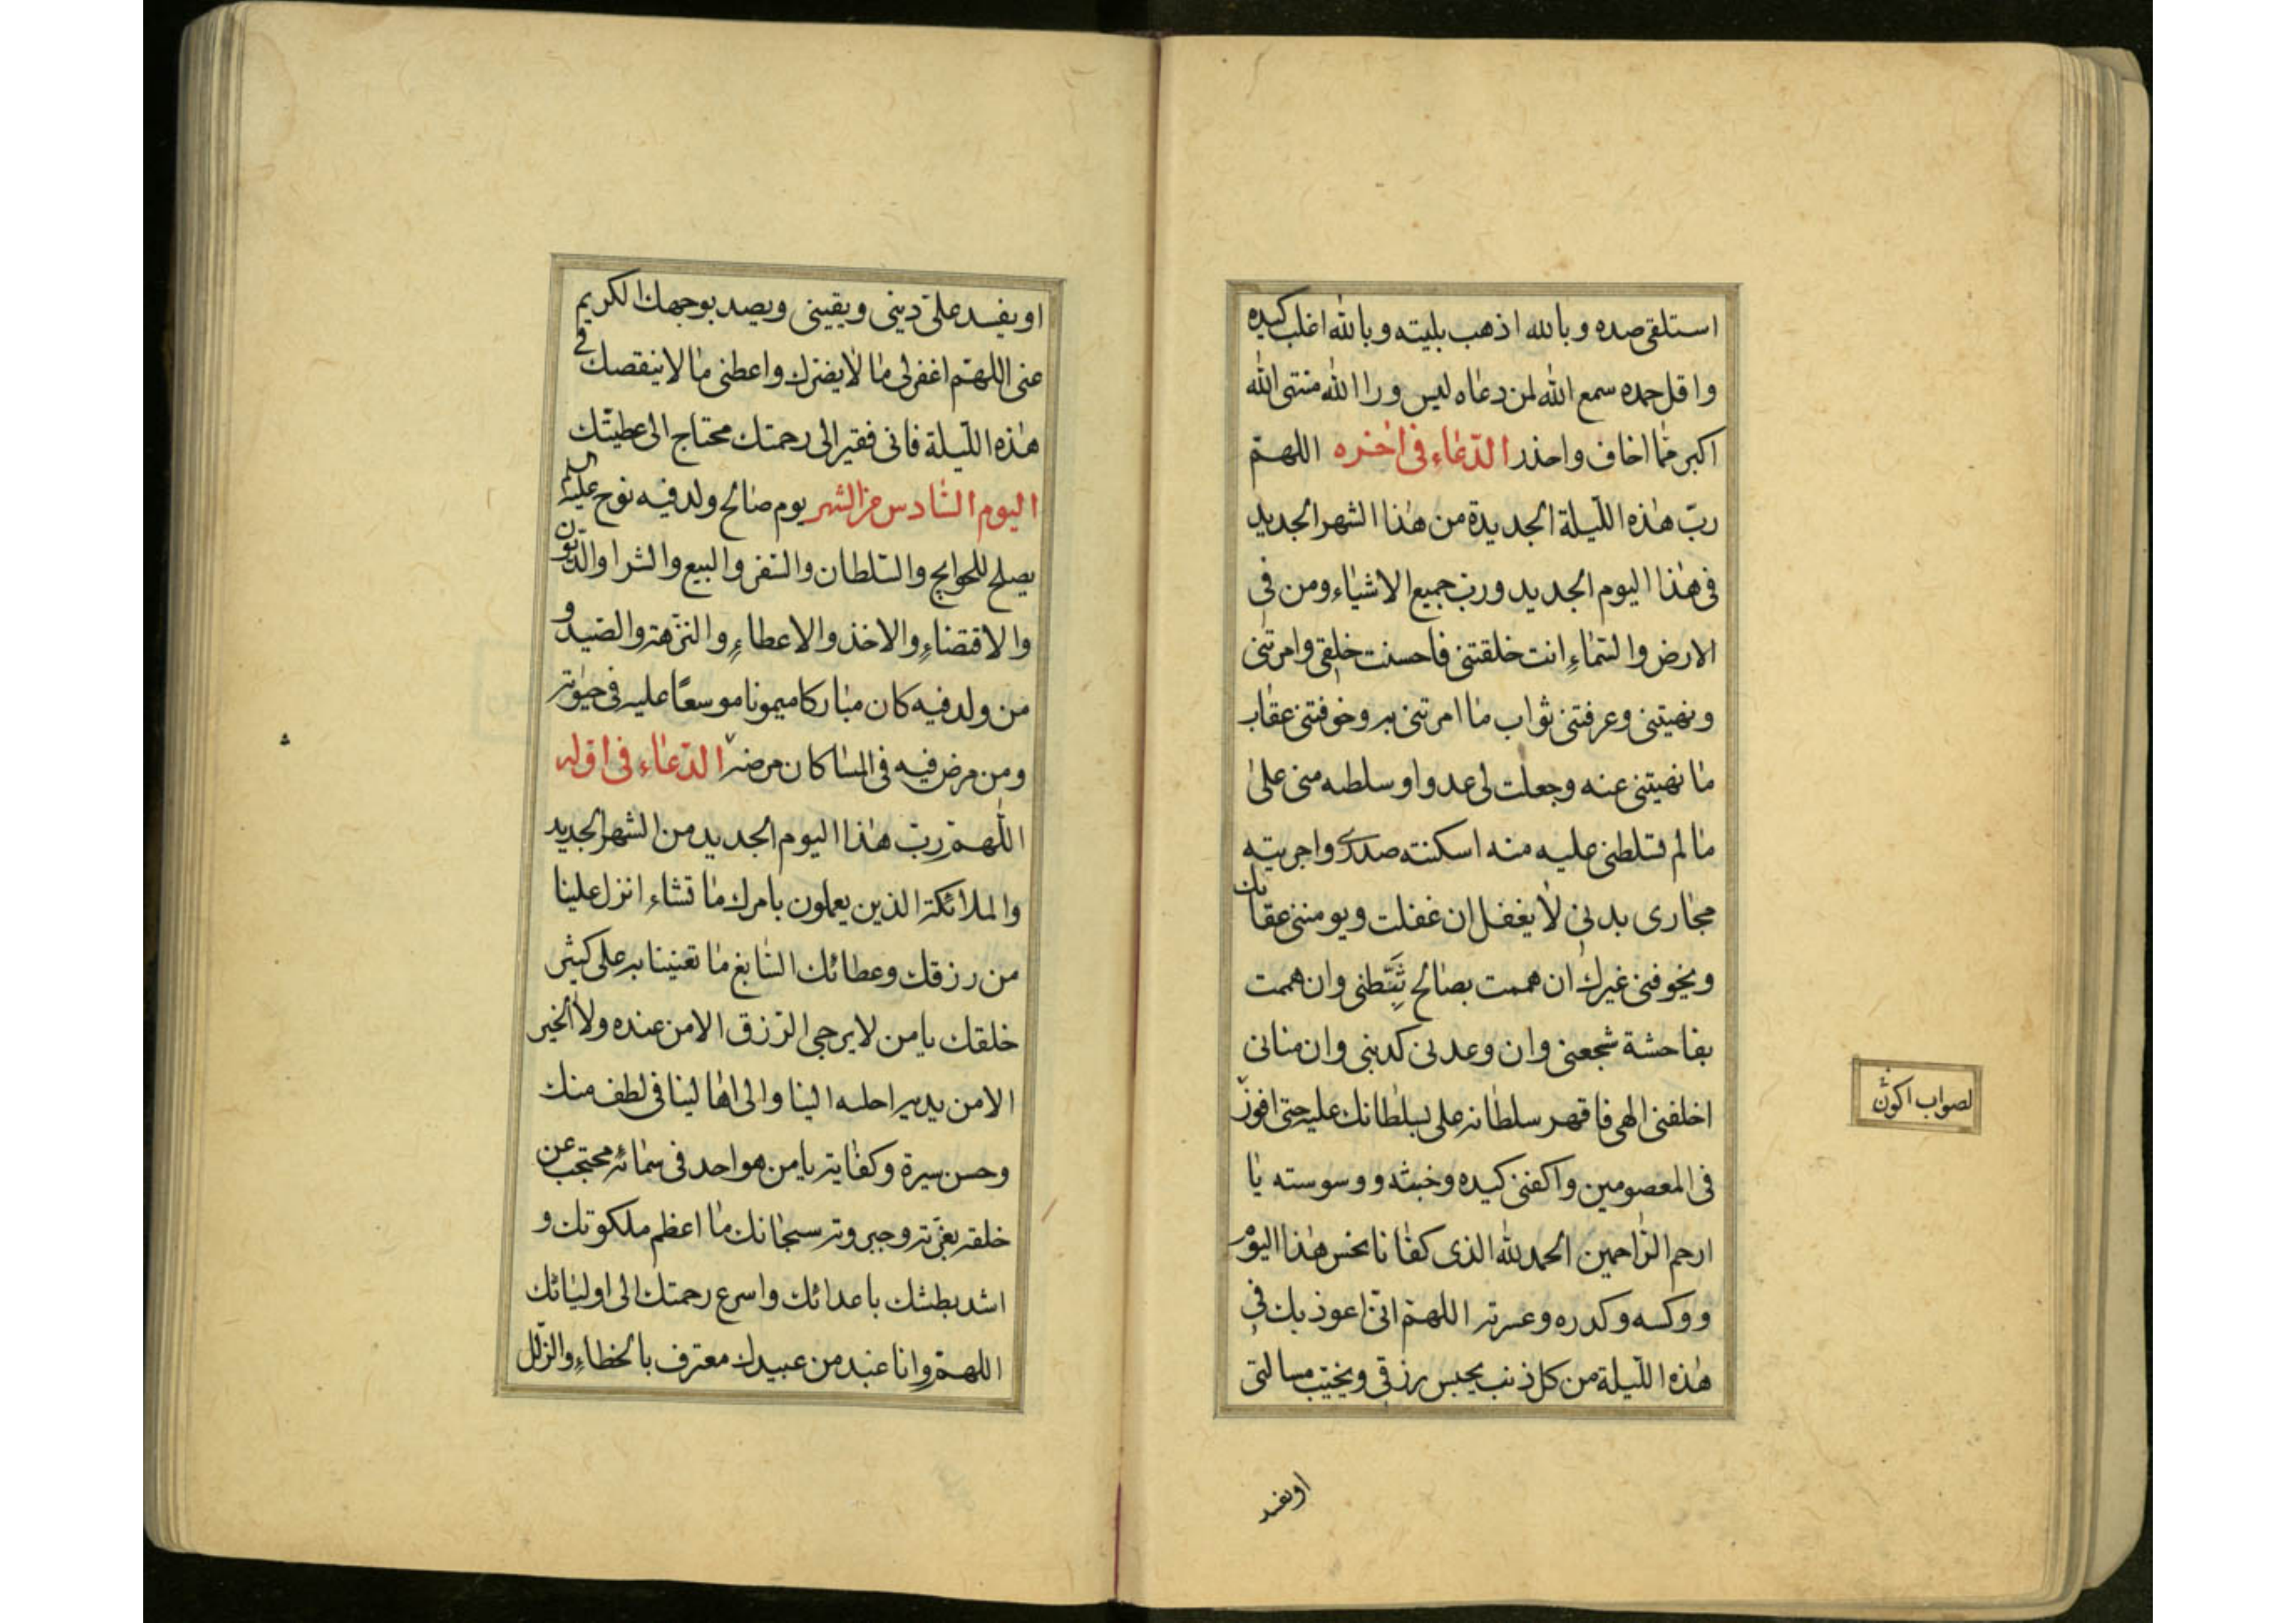 استلقى صده وبالله اذهب بليته وبالله اغلب كيده
واقل حده سمع الله لمن دعاه ليس ورا الله منتهى الله
اكبر مما اخاف واحذر الدعاء فى اخره اللهم
رب هذه الليلة الجديدة من هذا الشهر الجديد
فى هذا اليوم الجديد ورب جميع الاشياء ومن فى
الارض والسماء انت خلقتنى فاحسنت خلقى وامرتنى
ونهيتنى وعرفتنى ثواب ما امرتنى به وخوفتنى عقاب
ما نهيتنى عنه وجعلت لى عدوا وسلطه منى على
ما لم تسلطنى عليه منه اسكنته صدرى واجريته
مجارى بدنى لا يغفل ان غفلت ويومننى عقابك
ويخوفنى غيرك ان هممت بصالح ثبطنى وان هممت
بفاحشة شجعنى وان وعدنى كذبنى وان منانى
اخلفنى الهى فاقهر سلطانه على بسلطانك عليه حتى افوز
فى المعصومين واكفنى كيده وخبثه ووسوسته يا
ارحم الراحمين الحمد لله الذى كفانا نحس هذا اليوم
ووكسه وكدره وعسرته اللهم انى اعوذ بك فى
هذه الليلة من كل ذنب يحبس رزقى ويخيب مسالتى
او يفسد
لصواب اكون
او يفسد على دينى ويقينى ويصد بوجهك الكريم
عنى اللهم اغفر لى ما لا يضرك واعطنى ما لا ينقصك فى
هذه الليلة فانى فقير الى رحمتك محتاج الى عطيتك
اليوم السادس من الشهر يوم صالح ولد فيه نوح عليه السلم
يصلح للحوايج والسلطان والسفر والبيع والشرا والديون
والاقتضاء والاخذ والاعطاء والنزهة والصيد و
من ولد فيه كان مباركا ميمونا موسعا عليه فى حيوته
ومن مرض فيه فى المسا كان مرضه الدعاء فى اوله
اللهم رب هذا اليوم الجديد من الشهر الجديد
والملائكة الذين يعملون بامرك ما تشاء انزل علينا
من رزقك وعطائك السابغ ما تعنينا به على كثير
خلقك يا من لا يرجى الرزق الا من عنده ولا الخير
الا من يديه احله الينا والى اهالينا فى لطف منك
وحسن سيرة وكفاية يا من هو احد فى سمائه محتجب عن
خلقه بعزته وجبروته سبحانك ما اعظم ملكوتك و
اشد بطشك باعدائك واسرع رحمتك الى اوليائك
اللهم وانا عبد من عبيدك معترف بالخطاء والزلل